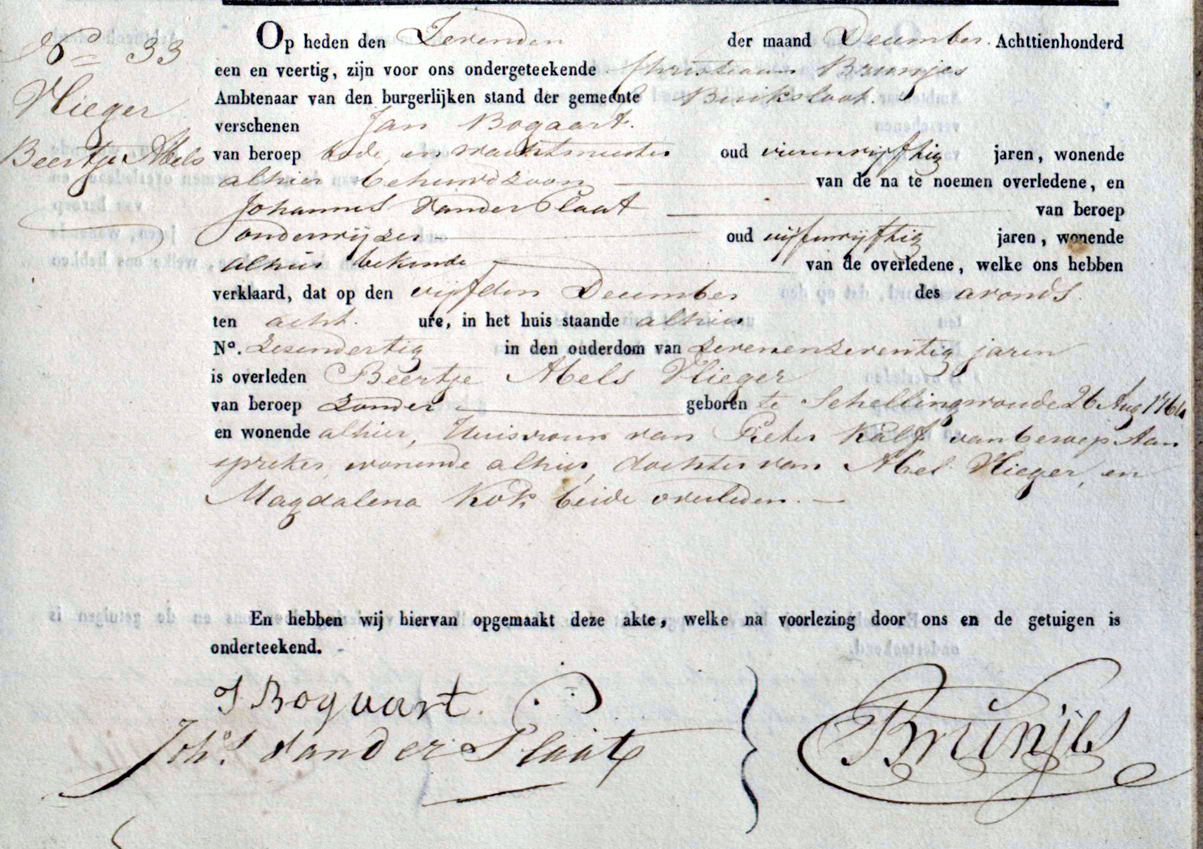 No 33
Vlieger
Beertje Abels
Op heden den Zevenden der maand December Achttienhonderd
een en veertig, zijn voor ons ondergeteekende Christiaan Bruinjes
Ambtenaar van den burgerlijken stand der gemeente Buiksloot
verschenen Jan Bogaart.
van beroep bode en wachtmeester oud vierenvijftig jaren, wonende
alhier behuwdzoon van de na te noemen overledene, en
Johannes van der Plaat van beroep
onderwijzer oud vijfenvijftig jaren, wonende
alhier bekende van de overledene, welke ons hebben
verklaard, dat op den vijfden December des avonds
ten acht ure, in het huis staande alhier
No. Zesendertig in den ouderdom van zevenenzeventig jaren
is overleden Beertje Abels Vlieger
van beroep zonder geboren te Schellingwoude 26 Aug 1764
en wonende alhier, Huisvrouw van Pieter Kalf van beroep Aan
spreker, wonende alhier, dochter van Abel Vlieger, en
Magdalena Kok beide overleden.
En hebben wij hiervan opgemaakt deze akte, welke na voorlezing door ons en de getuigen is
onderteekend.
J Bogaart.
Johs. van der Plaat
Bruinjes